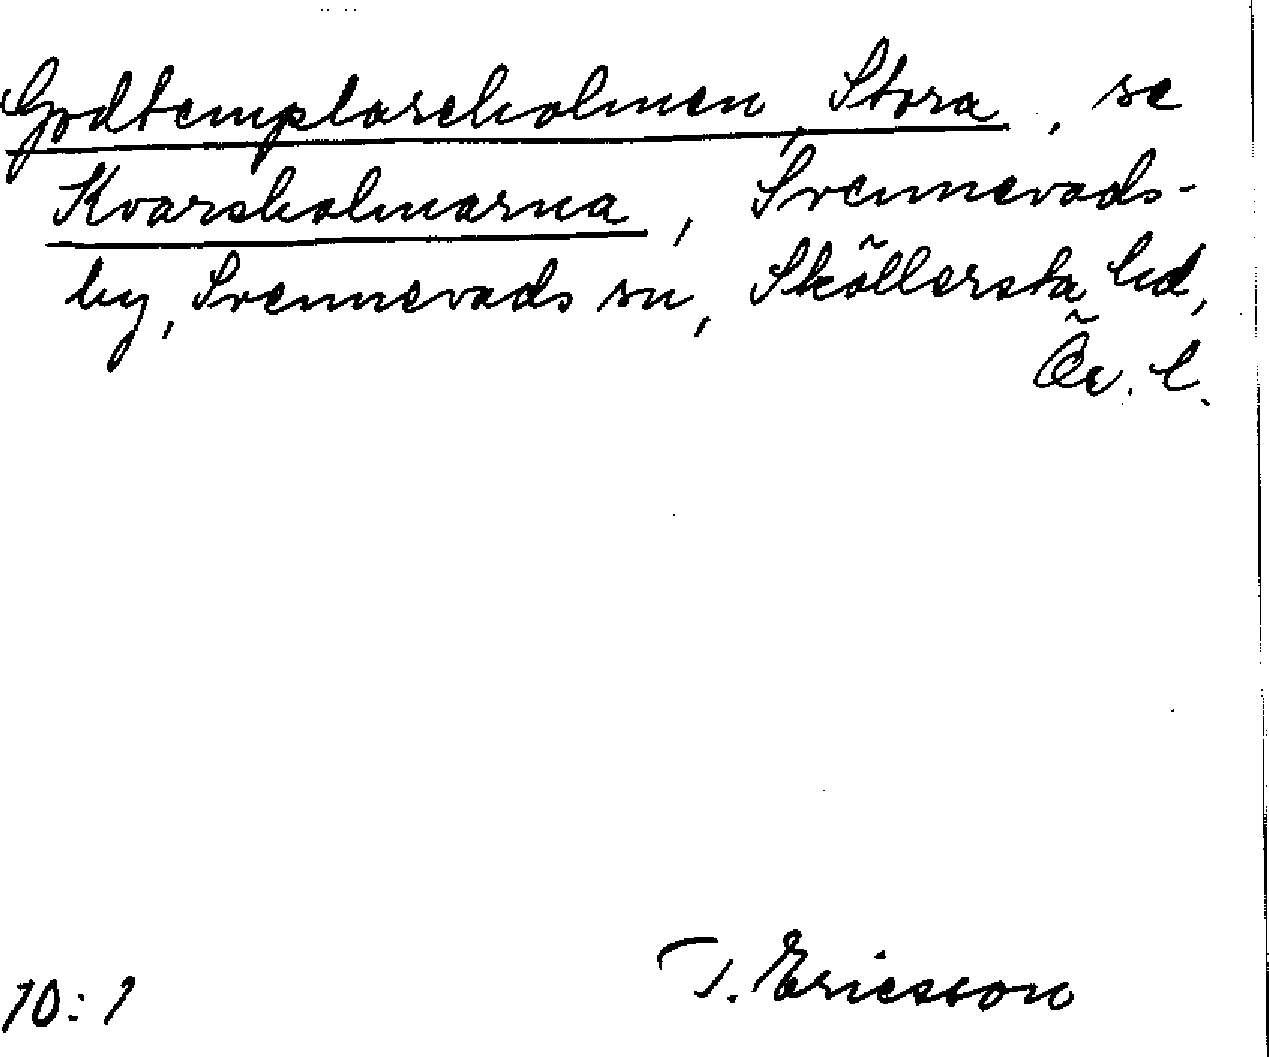 Godtemplareholmen, Stora, se
Kvarsholmarna, Svennevads-
by, Svennevads sn, Sköllersta hd,
Ör. l.
T. Ericsson
10:1